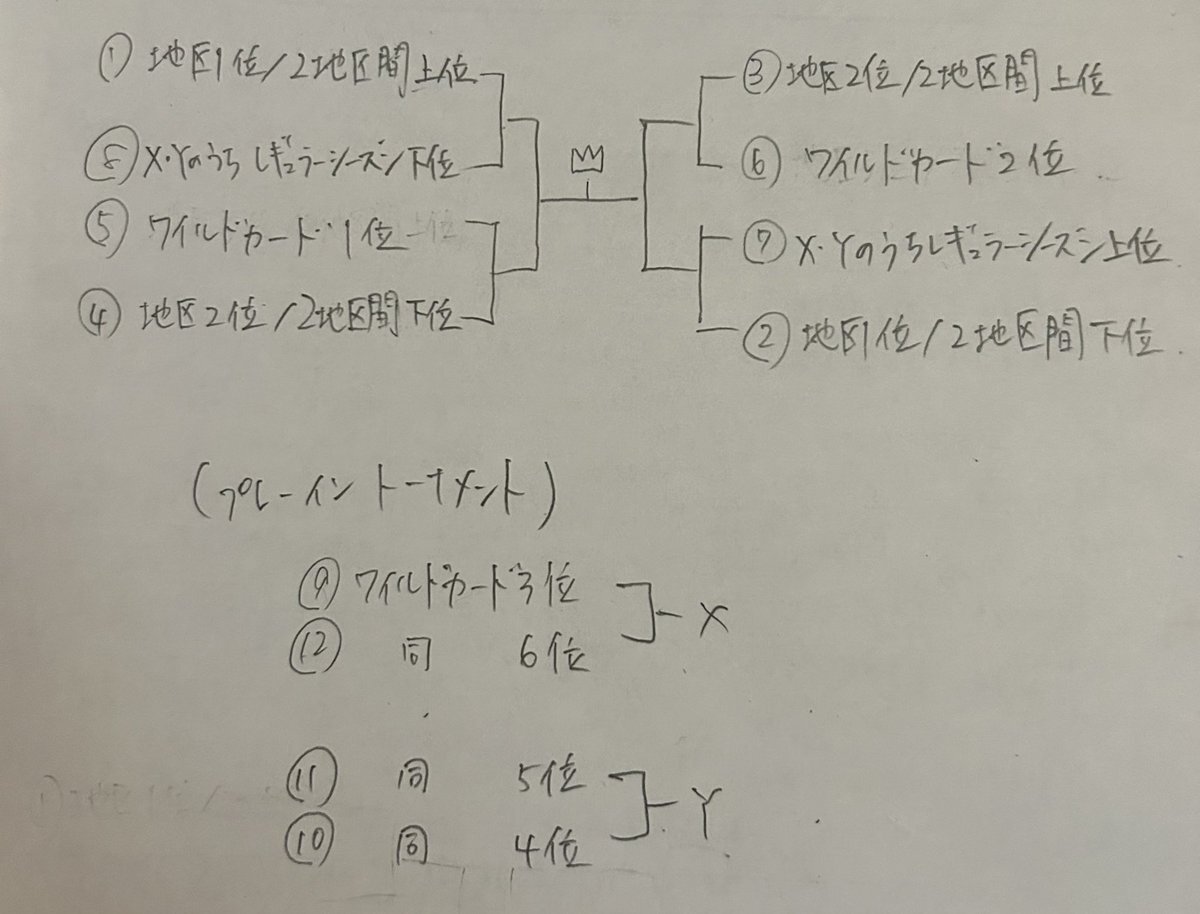 ① 地区1位/2地区間上位
⑧ X・Yのうちレギュラーシーズン下位
⑤ ワイルドカード1位
④ 地区2位/2地区間下位
③ 地区2位/2地区間上位
⑥ ワイルドカード2位
⑦ X・Yのうちレギュラーシーズン上位
② 地区1位/2地区間下位
(プレーイントーナメント)
⑨ ワイルドカード3位
⑫ 同 6位
X
⑪ 同 5位
⑩ 同 4位
Y